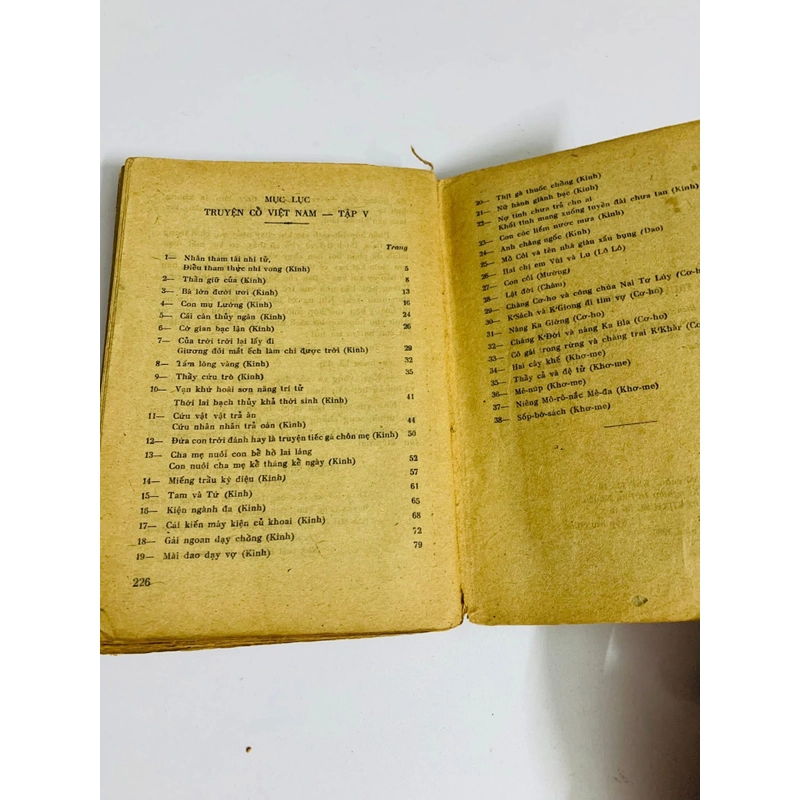 MỤC LỤC
TRUYỆN CỔ VIỆT NAM — TẬP V
Trang
1— Nhân tham tài nhi tử,
Điểu tham thực nhi vong (Kinh) 5
2— Thần giữ của (Kinh) 8
3— Bà lớn đười ươi (Kinh) 13
4— Con mụ Lường (Kinh) 16
5— Cái cân thủy ngân (Kinh) 24
6— Cờ gian bạc lận (Kinh) 26
7— Của trời trời lại lấy đi
Giương đôi mắt ếch làm chi được trời (Kinh) 29
8— Tấm lòng vàng (Kinh) 32
9— Thầy cứu trò (Kinh) 35
10— Vạn khứ hoài sơn năng trí tử
Thời lai bạch thủy khả thời sinh (Kinh) 41
11— Cứu vật vật trả ân
Cứu nhân nhân trả oán (Kinh) 44
12— Đứa con trời đánh hay là truyện tiếc gà chôn mẹ (Kinh) 50
13— Cha mẹ nuôi con bể hồ lai láng
Con nuôi cha mẹ kể tháng kể ngày (Kinh) 52
14— Miếng trầu kỳ diệu (Kinh) 57
15— Tam và Tứ (Kinh) 61
16— Kiện ngành đa (Kinh) 65
17— Cái kiến mày kiện củ khoai (Kinh) 68
18— Gái ngoan dạy chồng (Kinh) 72
19— Mài dao dạy vợ (Kinh) 79
226
20— Thịt gà thuốc chồng (Kinh)
21— Nữ hành giành bạc (Kinh)
22— Nợ tình chưa trả cho ai
Khối tình mang xuống tuyền đài chưa tan (Kinh)
23— Con cóc liếm nước mưa (Kinh)
24— Anh chàng ngốc (Kinh)
25— Mồ Côi và tên nhà giàn xấu bụng (Dao)
26— Hai chị em Vũi và Lu (Lô Lô)
27— Con côi (Mường)
28— Lột đời (Chăm)
29— Chàng Cơ-ho và công chúa Nai Tơ Lúy (Cơ-ho
30— K'Sách và K'Giong đi tìm vợ (Cơ-ho)
31— Nàng Ka Giờng (Cơ-ho)
32— Chàng K'Đời và nàng Ka Bla (Cơ-ho)
33— Cô gái trong rừng và chàng trai K'Khăr (Cơ-
34— Hai cây khế (Khơ-me)
35— Thầy cả và đệ tử (Khơ-me)
36— Mê-núp (Khơ-me)
37— Niêng Mô-rô-nắc Mê-đa (Khơ-me)
38— Sốp-bờ-sách (Khơ-me)